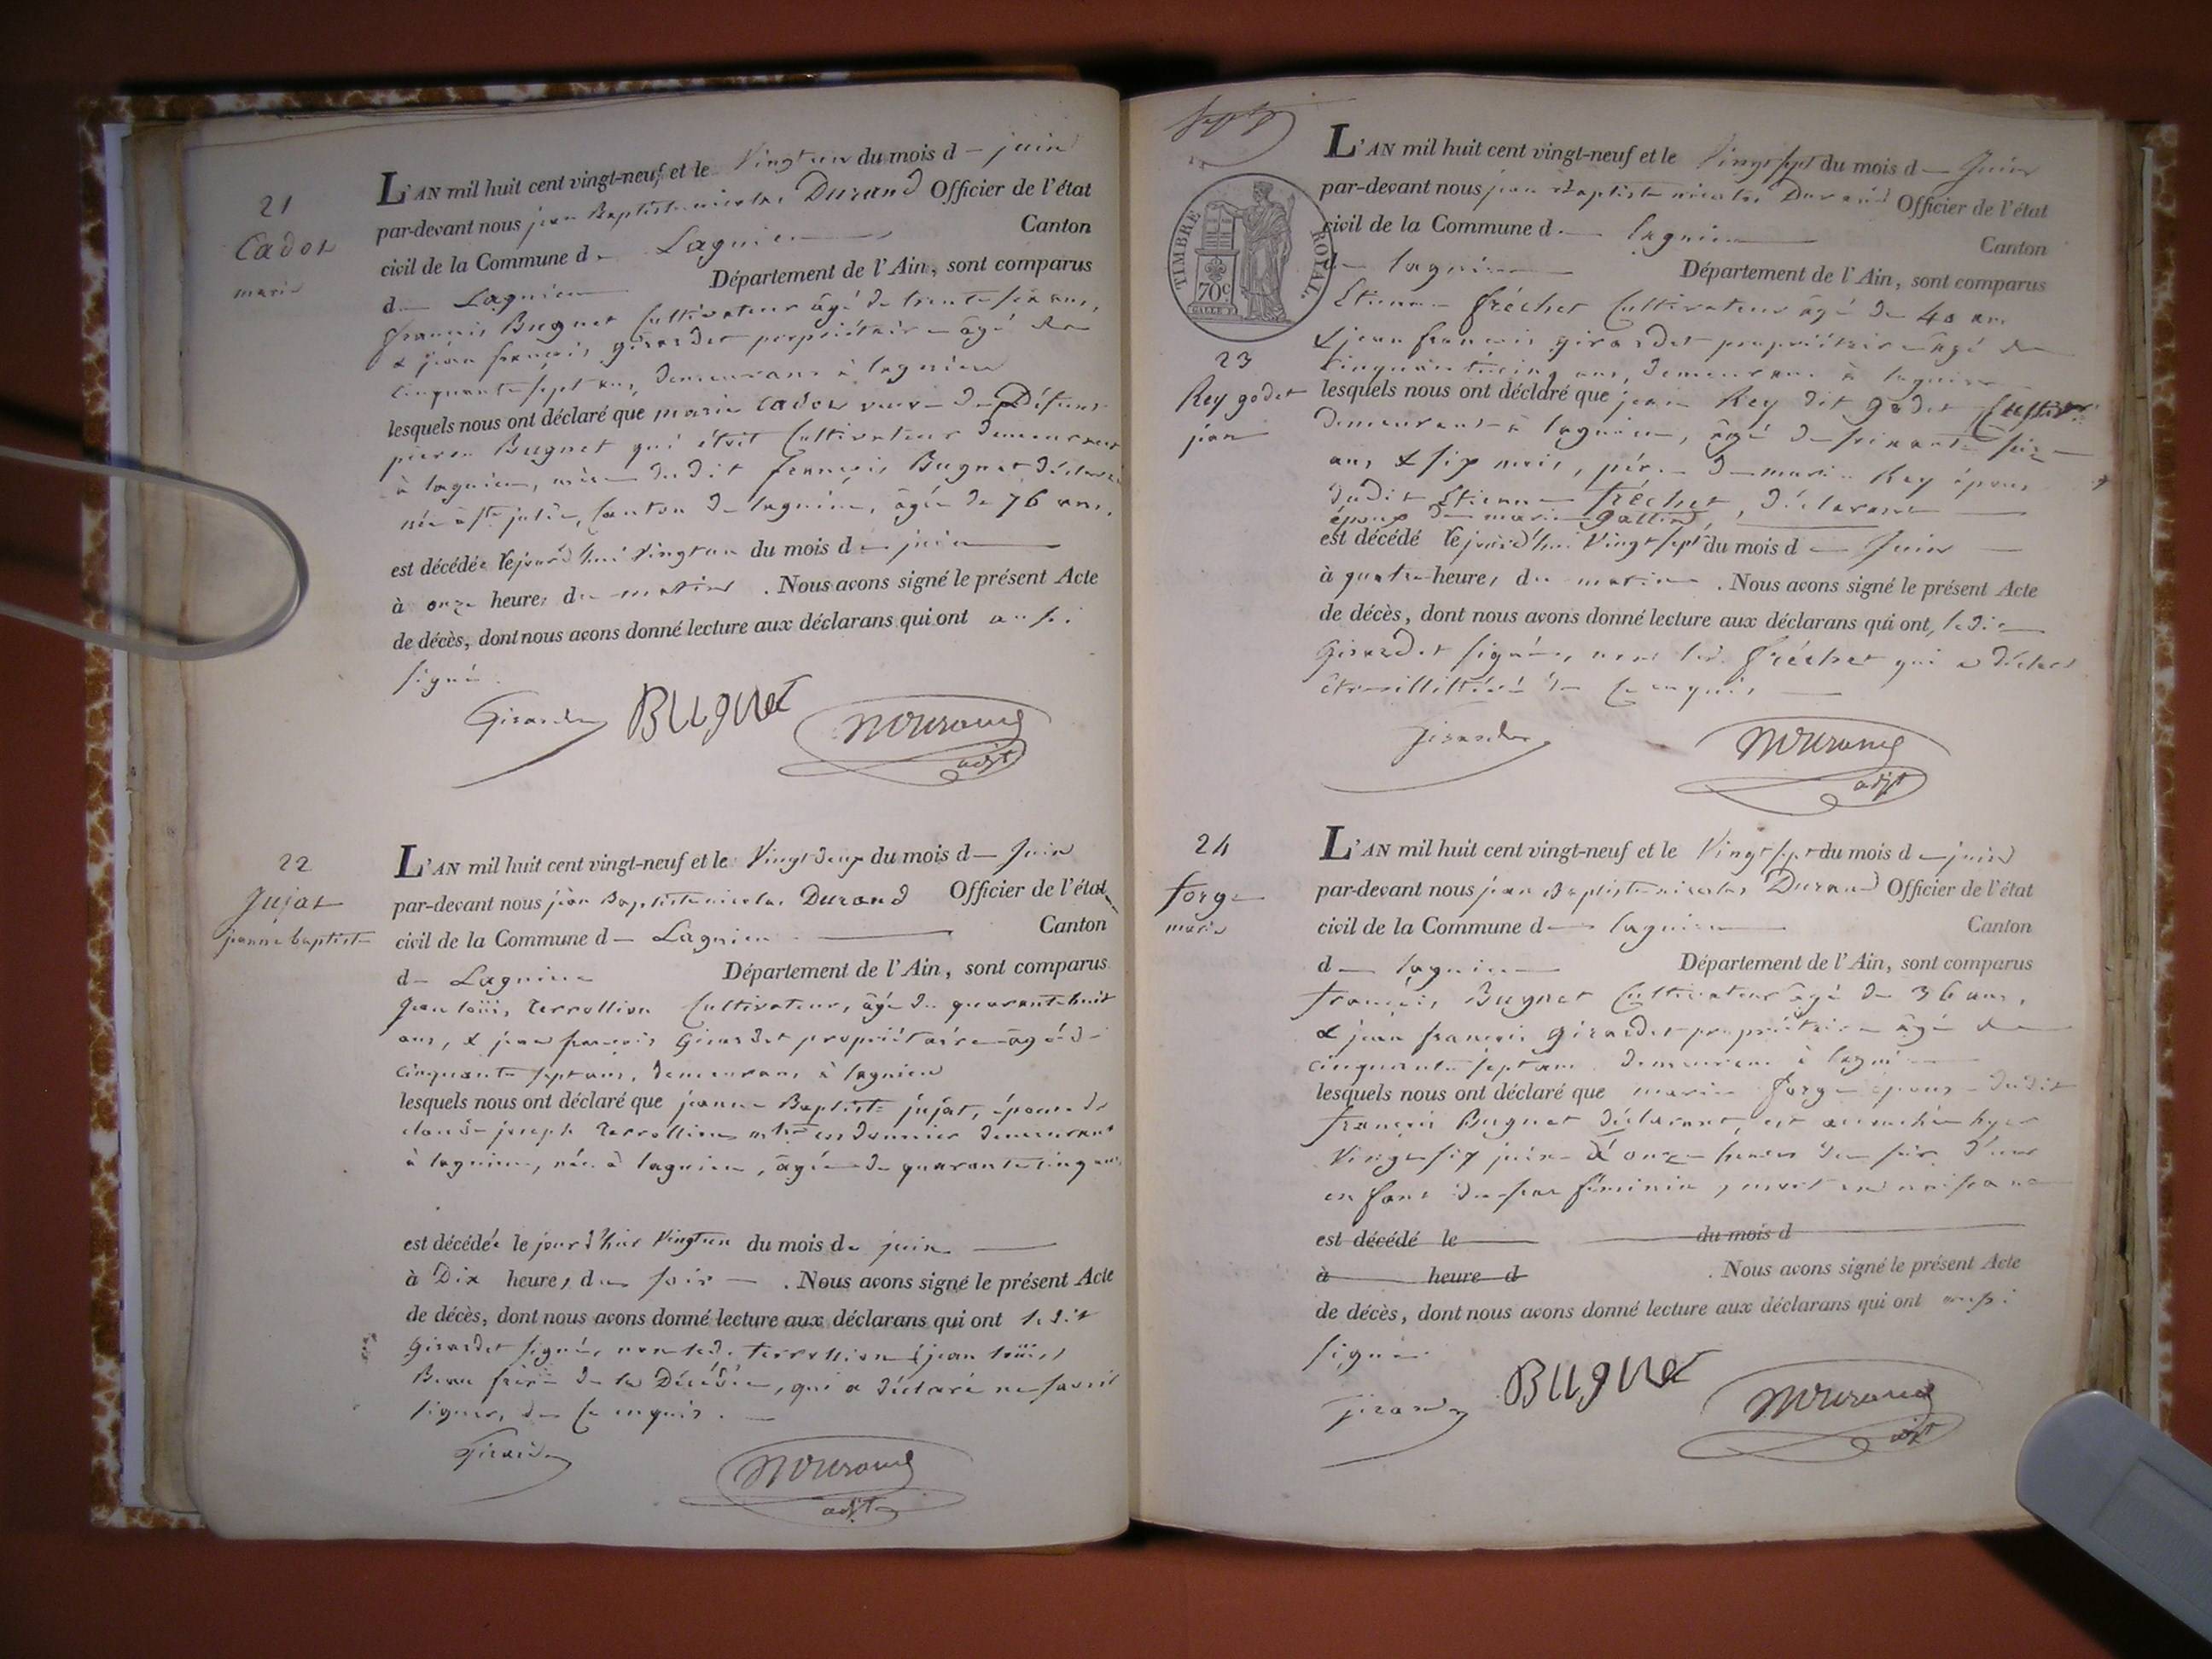 21
Cador
marie
L'AN mil huit cent vingt-neuf et le Vingt un du mois d juin
par-devant nous jean Baptiste nicolas Durand Officier de l'état
civil de la Commune d Lagnieu Canton
d Lagnieu Département de l'Ain, sont comparus
françois Bugnet Cultivateur âgé de trente six ans,
& jean françois girardet propriétaire âgé de
cinquante sept ans, demeurans à lagnieu
lesquels nous ont déclaré que marie Cador veuve de Défunt
pierre Bugnet qui étoit Cultivateur demeurant
à lagnieu, mère dudit françois Bugnet déclarant
née à ste julie, Canton de lagnieu, âgée de 76 ans.
est décédée le jourd'hui Vingt un du mois de juin
à onze heures du matin . Nous avons signé le présent Acte
de décès, dont nous avons donné lecture aux déclarans qui ont aussi
signé.
Girardet BUgnet NDurand
adjt
22
Jujat
jeanne baptiste
L'AN mil huit cent vingt-neuf et le Vingt deux du mois d Juin
par-devant nous jean Baptiste nicolas Durand Officier de l'état
civil de la Commune d Lagnieu Canton
d Lagnieu Département de l'Ain, sont comparus
Jean loüis Terrollion Cultivateur, âgé de quarante huit
ans, & jean françois Girardet propriétaire âgé de
cinquante sept ans, demeurans à lagnieu
lesquels nous ont déclaré que jeanne Baptiste jujat, épouse de
claude joseph Terrollion mtre cordonnier demeurant
à lagnieu, née à lagnieu, âgée de quarante cinq ans
est décédée le jour d'hier Vingt un du mois de juin
à Dix heures du soir . Nous avons signé le présent Acte
de décès, dont nous avons donné lecture aux déclarans qui ont ledit
Girardet signé, non led. Terrollion (jean loüis)
Beau frère de la Décédée, qui a déclaré ne savoir
signer, de ce enquis.
Girardet NDurand
adjt
TIMBRE ROYAL.
70c
L'AN mil huit cent vingt-neuf et le Vingt sept du mois d Juin
par-devant nous jean Baptiste nicolas Durand Officier de l'état
civil de la Commune d lagnieu Canton
d lagnieu Département de l'Ain, sont comparus
Etienne fréchet Cultivateur âgé de 40 ans
& jean françois girardet propriétaire âgé de
cinquante cinq ans, demeurans à lagnieu
23
Rey godet
jean
lesquels nous ont déclaré que jean Rey dit Godet Cultivr
demeurant à lagnieu, âgé de soixante seize
ans & six mois, père de marie Rey épouse
dudit Etienne fréchet, déclarant
époux de marie Gallin,
est décédé le jourd'hui Vingt sept du mois d Juin
à quatre heures du matin . Nous avons signé le présent Acte
de décès, dont nous avons donné lecture aux déclarans qui ont, ledit
Girardet signé, non led. fréchet qui a déclaré
être illittéré de ce enquis
Girardet NDurand
adjt
24
forge
marie
L'AN mil huit cent vingt-neuf et le Vingt sept du mois d juin
par-devant nous jean Baptiste nicolas Durand Officier de l'état
civil de la Commune d lagnieu Canton
d lagnieu Département de l'Ain, sont comparus
françois Bugnet Cultivateur âgé de 36 ans,
& jean françois Girardet propriétaire âgé de
cinquante sept ans demeurans à lagnieu
lesquels nous ont déclaré que marie forge épouse dudit
françois Bugnet déclarant, est accouchée hyer
Vingt six juin à onze heures du soir d'un
enfant du sexe féminin, mort en naissance
est décédé le du mois d
à heure d . Nous avons signé le présent Acte
de décès, dont nous avons donné lecture aux déclarans qui ont aussi
signé
Girardet BUgnet NDurand
adjt